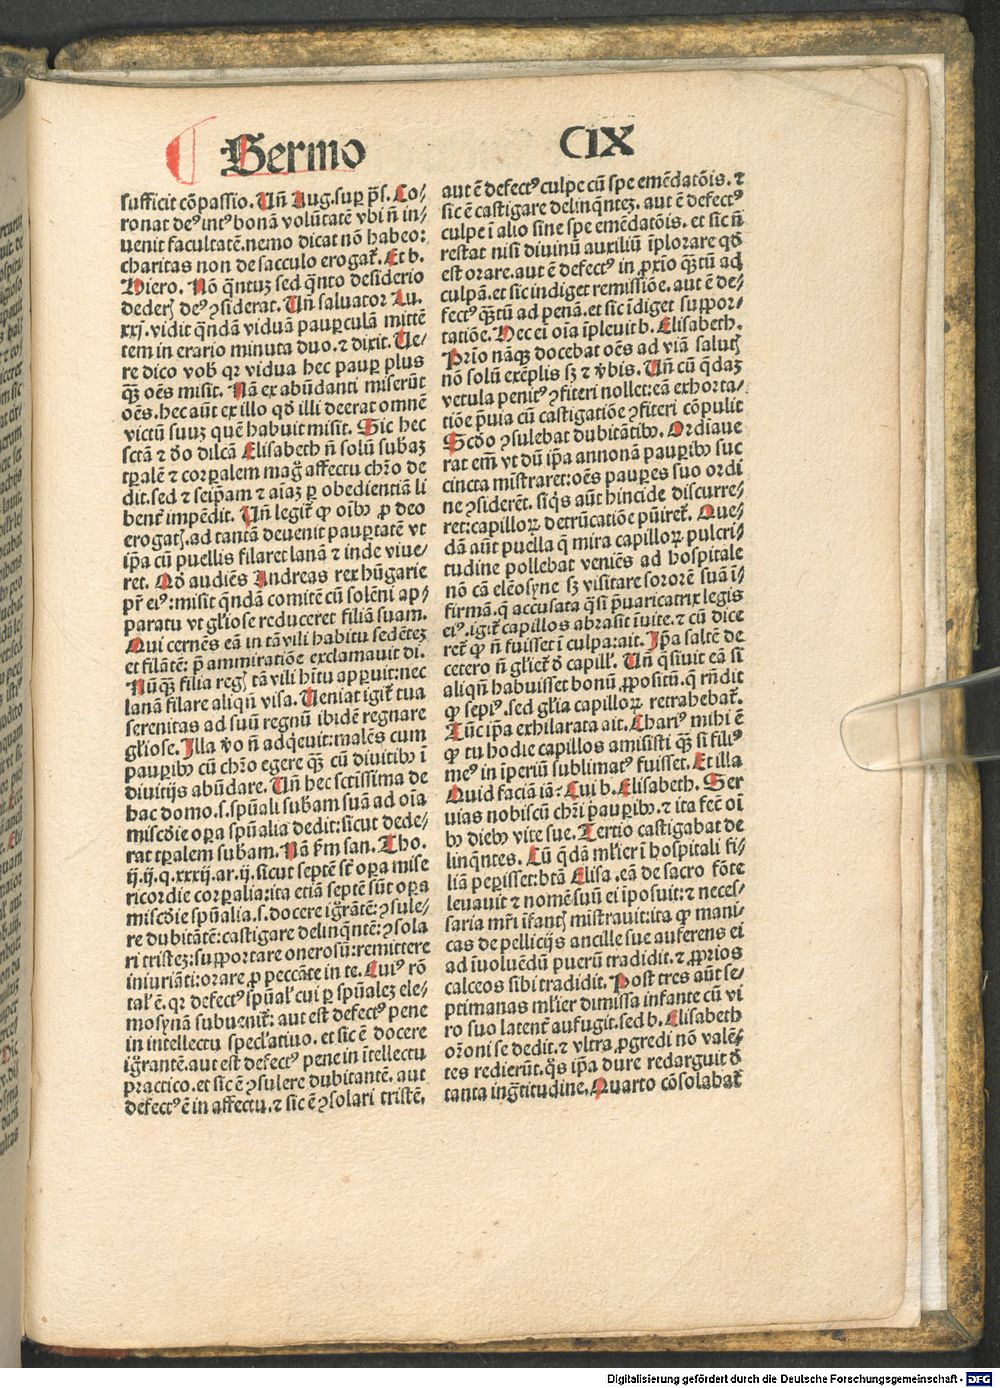 Sermo CIX
sufficit cōpassio. Uñ Aug. suꝑ p̄s. Co⸗
ronat deꝰ intꝰ bonā volūtatē vbi ñ in⸗
uenit facultatē. nemo dicat nō habeo:
charitas non de sacculo erogat̄. Et b.
Hiero. Nō q̄ntuz sed q̄nto desiderio
dederꝭ deꝰ ꝯsiderat. Uñ saluator Lu.
xxj. vidit q̄ndā viduā pauꝑculā mittē
tem in erario minuta duo. ⁊ dixit. Ue⸗
re dico vob̄ qꝛ vidua hec pauꝑ plus
q̄ꝫ oēs misit. Nā ex abūdanti miserūt
oēs. hec aūt ex illo qd̄ illi deerat omnē
victū suuꝫ quē habuit misit. Sic hec
sctā ⁊ do dilcā Elisabeth ñ solū subaꝫ
tꝑalē ⁊ corꝑalem mag̊ affectu chr̄o de
dit. sed ⁊ seip̄am ⁊ aīaꝫ ꝑ obedientiā li
bent̄ impēdit. Uñ legit̄ ꝙ oībꝫ ꝓ deo
erogatꝭ. ad tantā deuenit pauꝑtatē vt
ip̄a cū puellis filaret lanā ⁊ inde viue⸗
ret. Qd̄ audiēs Andreas rex hūgarie
pr̄ eiꝰ: misit q̄ndā comitē cū solēni ap⸗
paratu vt gl̄iose reduceret filiā suam.
Qui cernēs eā in tā vili habitu sedēteꝫ
et filātē: p̄ ammiratiōe exclamauit di.
Nūq̄ꝫ filia regꝭ tā vili hītu apꝑuit: nec
lanā filare aliqñ visa. Ueniat igit̄ tua
serenitas ad suū regnū ibidē regnare
gl̄iose. Illa v̊o ñ adq̄euit: malēs cum
pauꝑibꝫ cū chr̄o egere q̄ꝫ cū diuitibꝫ ī
diuitijs abūdare. Uñ hec sctissima de
hac domo. s. sp̄uāli subam suā ad oīa
misc̄die oꝑa sp̄ualia dedit: sicut dede⸗
rat tꝑalem subam. Nā ẜm san. Tho.
ij. ij. q. xxxij. ar. ij. sicut septē st̄ oꝑa mise
ricordie corꝑalia: ita etiā septē sūt oꝑa
misc̄die sp̄ualia. s. docere ig̊rātē: ꝯsule⸗
re dubitātē: castigare delinq̄ntē: ꝯsola
ri tristeꝫ: supportare onerosū: remittere
iniuriāti: orare ꝓ peccāte in te. Cuiꝰ rō
tal̓ ē. qꝛ defectꝰ sp̄ual̓ cui ꝑ sp̄ualeꝫ ele⸗
mosynā subuenit̄: aut est defectꝰ pene
in intellectu specl̓atiuo. et sic ē docere
ig̊rantē. aut est defectꝰ pene in ītellectu
practico. et sic ē ꝯsulere dubitantē. aut
defectꝰ ē in affectu. ⁊ sic ē ꝯsolari tristē.
aut ē defectꝰ culpe cū spe emēdatōis. ⁊
sic ē castigare delinq̄nteꝫ. aut ē defectꝰ
culpe ī alio sine spe emēdatōis. et sic ñ
restat nisi diuinū auxiliū īplorare qd̄
est orare. aut ē defectꝰ in ꝓxīo q̄ꝫtū ad
culpā. et sic indiget remissiōe. aut ē de⸗
fectꝰ q̄ꝫtū ad penā. et sic īdiget suppor⸗
tatiōe. Hec ei oīa īpleuit b. Elisabeth.
Prīo nāqꝫ docebat oēs ad viā salutꝭ
nō solū exēplis sꝫ ⁊ v̓bis. Uñ cū q̄daꝫ
vetula penitꝰ ꝯfiteri nollet: eā exhorta⸗
tiōe p̄uia cū castigatiōe ꝯfiteri cōpulit
Scd̊o ꝯsulebat dubitātibꝫ. Ordiaue
rat em̄ vt dū ip̄a annonā pauꝑibꝫ suc
cincta mistraret: oēs pauꝑes suo ordi
ne ꝯsiderēt. siq̄s aūt hincide discurre⸗
ret: capilloꝝ detrūcatiōe pūiret̄. Que⸗
dā aūt puella q̄ mira capilloꝝ pulcri⸗
tudine pollebat veniēs ad hospitale
nō cā eleōsyne sꝫ visitare sororē suā ī⸗
firmā. q̄ accusata q̄si p̄uaricatrix legis
eiꝰ. igit̄ capillos abrasit īuite. ⁊ cū dice
ret̄ ꝙ ñ fuisset ī culpa: ait. Ip̄a saltē de
cetero ñ gl̓iet̄ d̓ capill̓. Uñ q̄siuit eā si
aliqñ habuisset bonū ꝓpositū. q̄ rñdit
ꝙ sepiꝰ. sed gl̄ia capilloꝝ retrahebat̄.
Tūc ip̄a exhilarata ait. Chariꝰ mihi ē
ꝙ tu hodie capillos amisisti q̄ꝫ si filiꝰ
meꝰ in īperiū sublimatꝰ fuisset. Et illa
Quid faciā iā? Cui b. Elisabeth. Ser
uias nobiscū chr̄i pauꝑibꝫ. ⁊ ita fec̄ oī
bꝫ diebꝫ vite sue. Tertio castigabat de
linq̄ntes. Cū q̄dā ml̓ier ī hospitali fi⸗
liā peꝑisset: btā Elisa. eā de sacro fōte
leuauit ⁊ nomē suū ei īposuit: ⁊ neces⸗
saria mr̄i īfantꝭ mistrauit: ita ꝙ mani⸗
cas de pellicijs ancille sue auferens ei
ad īuoluēdū puerū tradidit. ⁊ ꝓprios
calceos sibi tradidit. Post tres aūt se⸗
ptimanas ml̓ier dimissa infante cū vi
ro suo latent̄ aufugit. sed b. Elisabeth
or̄oni se dedit. ⁊ vltra ꝓgredi nō valē⸗
tes redierūt. q̊s ip̄a dure redarguit d̓
tanta ing̊titudine. Quarto cōsolabat̄
Digitalisierung gefördert durch die Deutsche Forschungsgemeinschaft - DFG